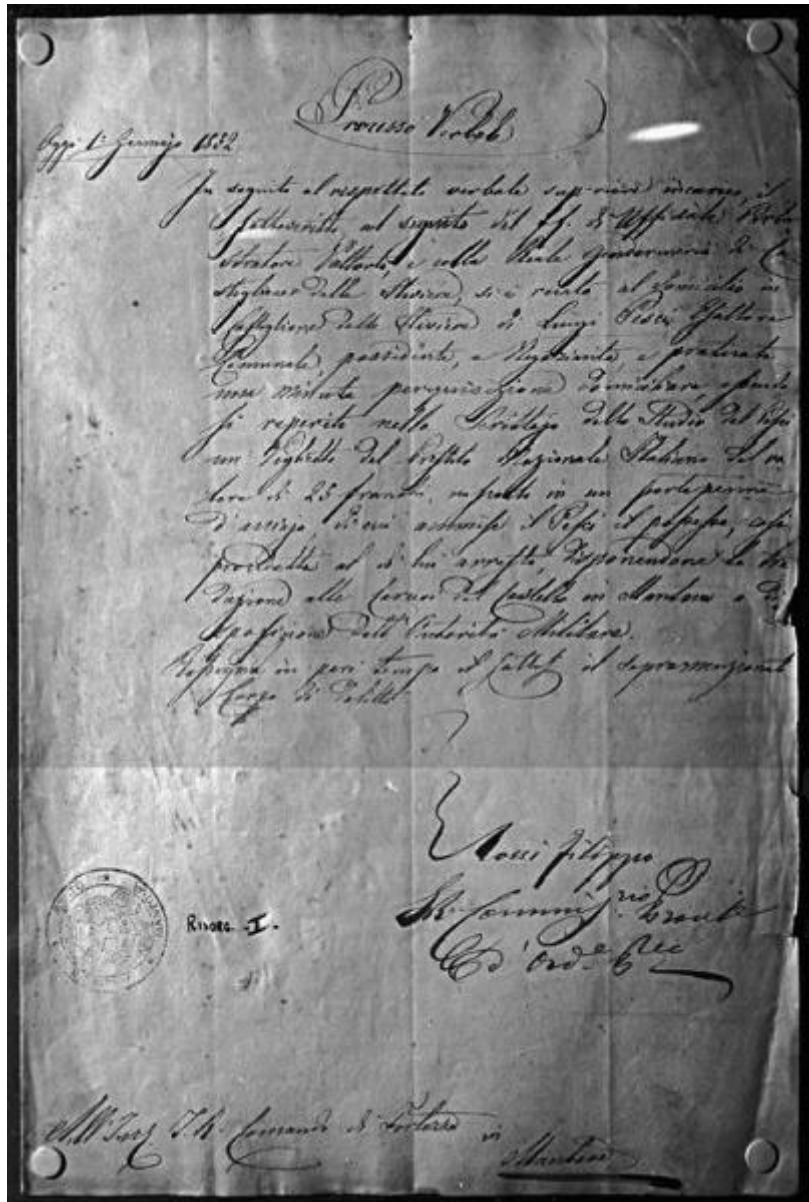 Processo Verbale
Oggi 1° Gennajo 1852
In seguito al rispettato verbale superiore incarico, il
sottoscritto, al seguito del ff. di Uffiziale Perlu-
stratore e colla Reale Gendarmeria di Ca-
stiglione delle Stiviere, si è recato al domicilio in
Castiglione delle Stiviere di Luigi Pesci Esattore
Comunale, possidente, e Negoziante, e praticata
una minuta perquisizione domiciliare, essendo
si reperito nello Scrittojo dello Studio del Pesci
un Viglietto del Prestito Nazionale Italiano del va-
lore di 25 franchi, in un porte penne
d'acciajo, di cui ammise il Pesci il possesso, così
procedette al di lui arresto, disponendone la tra-
duzione alle Carceri del Castello in Mantova a di-
sposizione dell'Autorità Militare.
Rassegna in pari tempo il soprammenzionato
Corpo di delitto.
Rossi Filippo
Comm
d'Ord
RISORG. I.
All' I. R. Comando di Fortezza in
Mantova